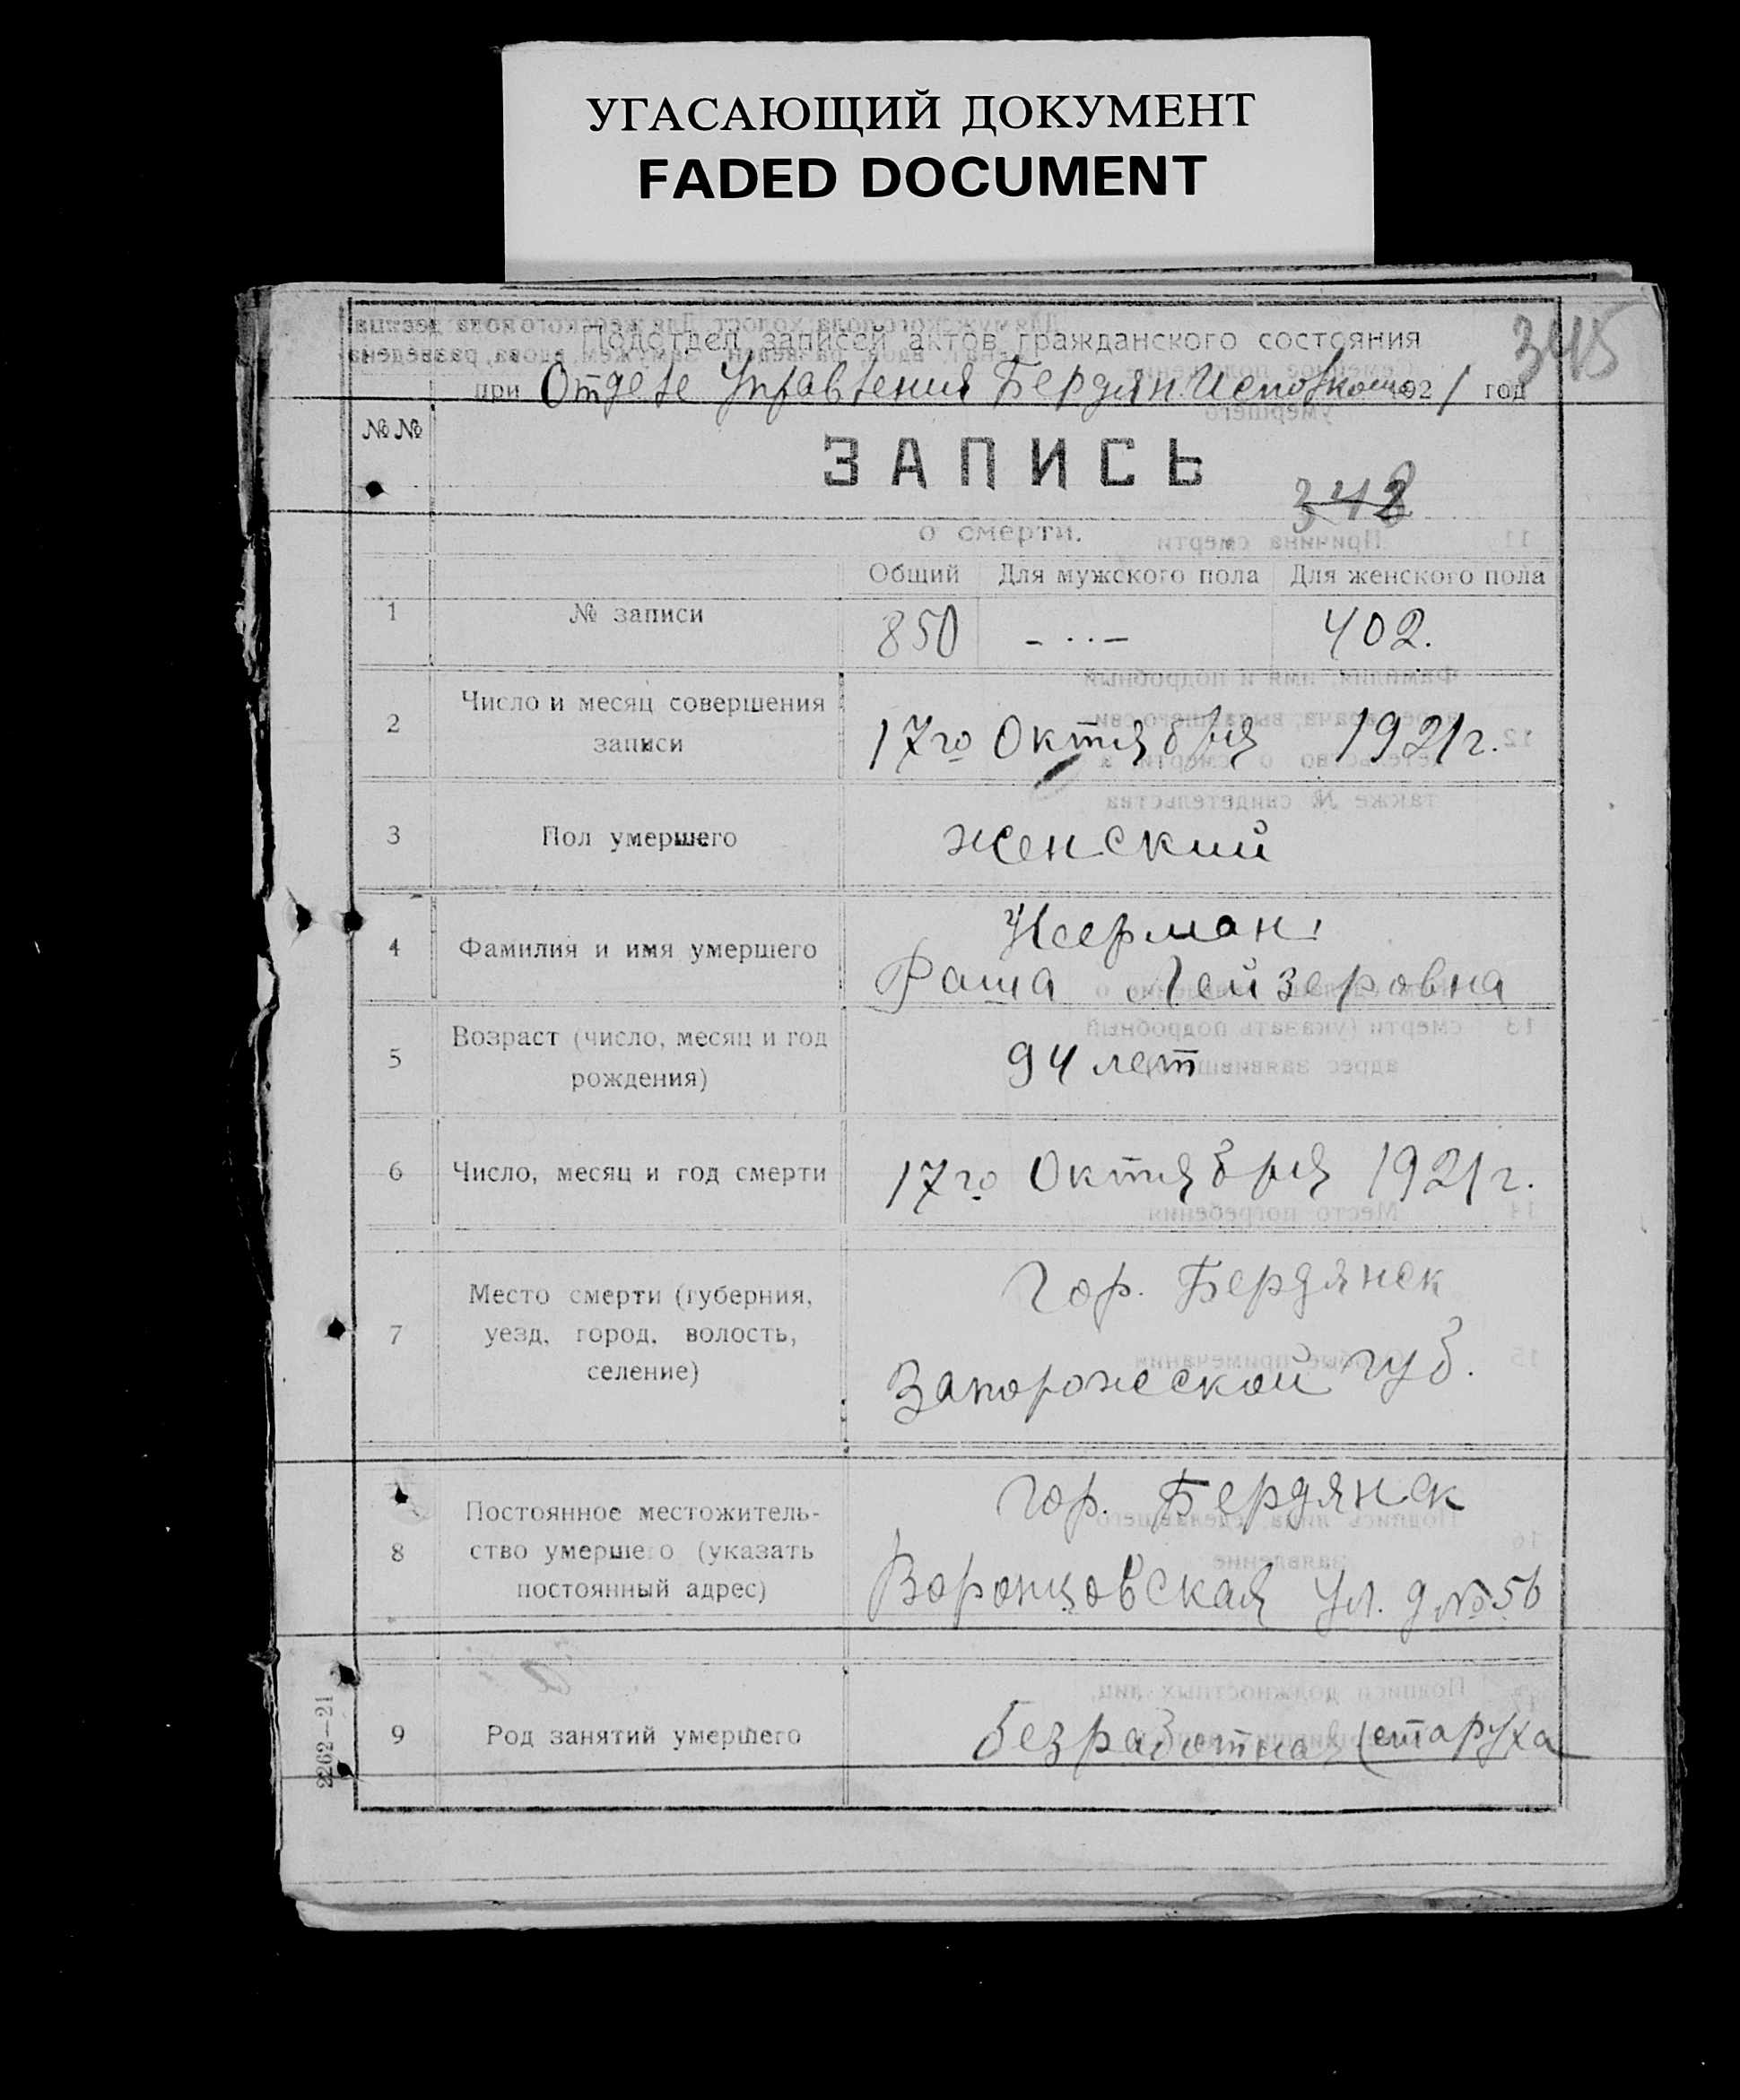 УГАСАЮЩИЙ ДОКУМЕНТ
FADED DOCUMENT
345
Подотдел записей актов гражданского состояния
при Отделе Управления Бердян. Исполкома 1921 год
№№
ЗАПИСЬ
348
о смерти.
Общий Для мужского пола Для женского пола
1 № записи 850 - .. - 402.
2 Число и месяц совершения
записи 17го Октября 1921г.
3 Пол умершего женский
4 Фамилия и имя умершего
Раша Лейзеровна
5 Возраст (число, месяц и год
рождения) 94 лет
6 Число, месяц и год смерти 17го Октября 1921г.
7 Место смерти (губерния,
уезд, город, волость,
селение)
Гор. Бердянск
Запорожской губ.
8 Постоянное местожитель-
ство умершего (указать
постоянный адрес)
Гор. Бердянск
Воронцовская ул. д №56
9 Род занятий умершего безработная (старуха
2262—21